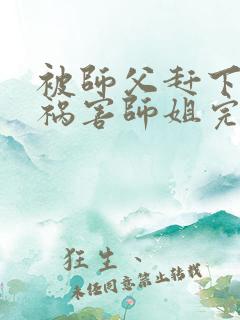 被師父赶下
祸害師姐完
狂生、
未经同意禁止转载